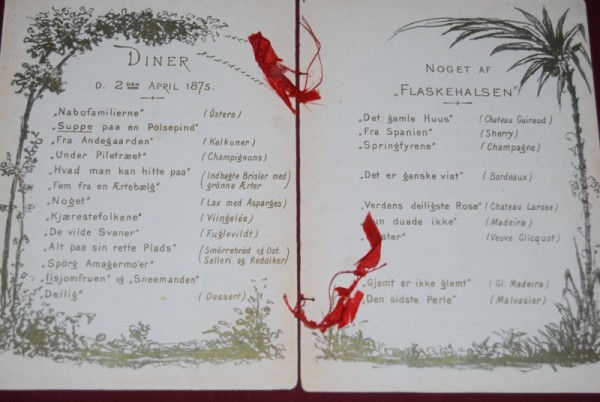 DINER
D. 2DEN APRIL 1875.
„Nabofamilierne" (Östers)
„Suppe paa en Pölsepind"
„Fra Andegaarden" (Kalkuner)
„Under Piletræet" (Champignons)
„Hvad man kan hitte paa" (Indbagte Brisler med
„Fem fra en Ærtebælg" grönne Ærter
„Noget" (Lax med Asparges)
„Kjærestefolkene" (Viingelée)
„De vilde Svaner" (Fuglevildt)
„Alt paa sin rette Plads" (Smörrebröd og Ost.
„Spörg Amagermo'er" Selleri og Raddiker)
„Iisjomfruen" og „Sneemanden"
„Deilig" (Dessert)
NOGET AF
„FLASKEHALSEN"
„Det gamle Huus" (Chateau Guiraud)
„Fra Spanien" (Sherry)
„Springfyrene" (Champagne)
„Det er ganske vist" (Bordeaux)
„Verdens deiligste Rose" (Chateau Larose)
duede ikke" (Madeira)
(Veuve Clicquot)
„Gjemt er ikke glemt" (Gl. Madeira)
„Den sidste Perle" (Malvasier)